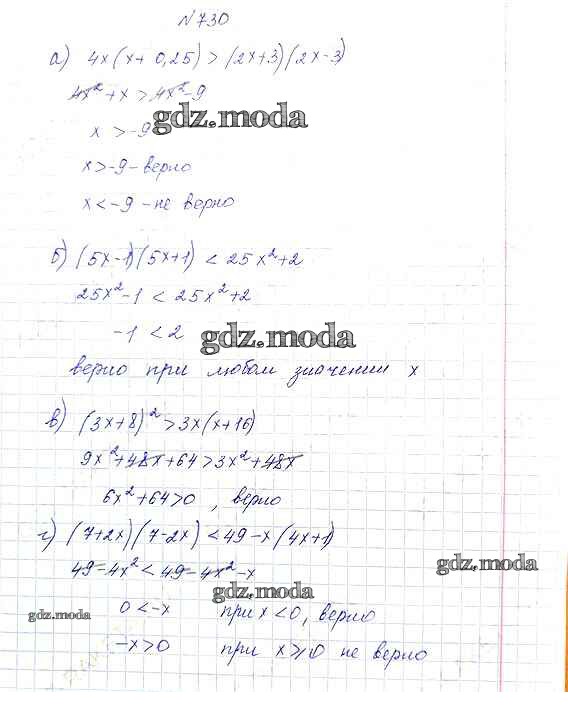 N 730
а) 4x(x + 0,25) > (2x+3)(2x-3)
4x² + x > 4x² - 9
gdz.moda
x > -9
x > -9 - верно
x < -9 - не верно
б) (5x-1)(5x+1) < 25x² + 2
25x² - 1 < 25x² + 2
-1 < 2
gdz.moda
верно при любом значении x
в) (3x+8)² > 3x(x+16)
9x² + 48x + 64 > 3x² + 48x
6x² + 64 > 0, верно
г) (7+2x)(7-2x) < 49 - x(4x+1)
49 - 4x² < 49 - 4x² - x
gdz.moda
gdz.moda
0 < -x при x < 0, верно
gdz.moda
-x > 0 при x ≥ 0 не верно